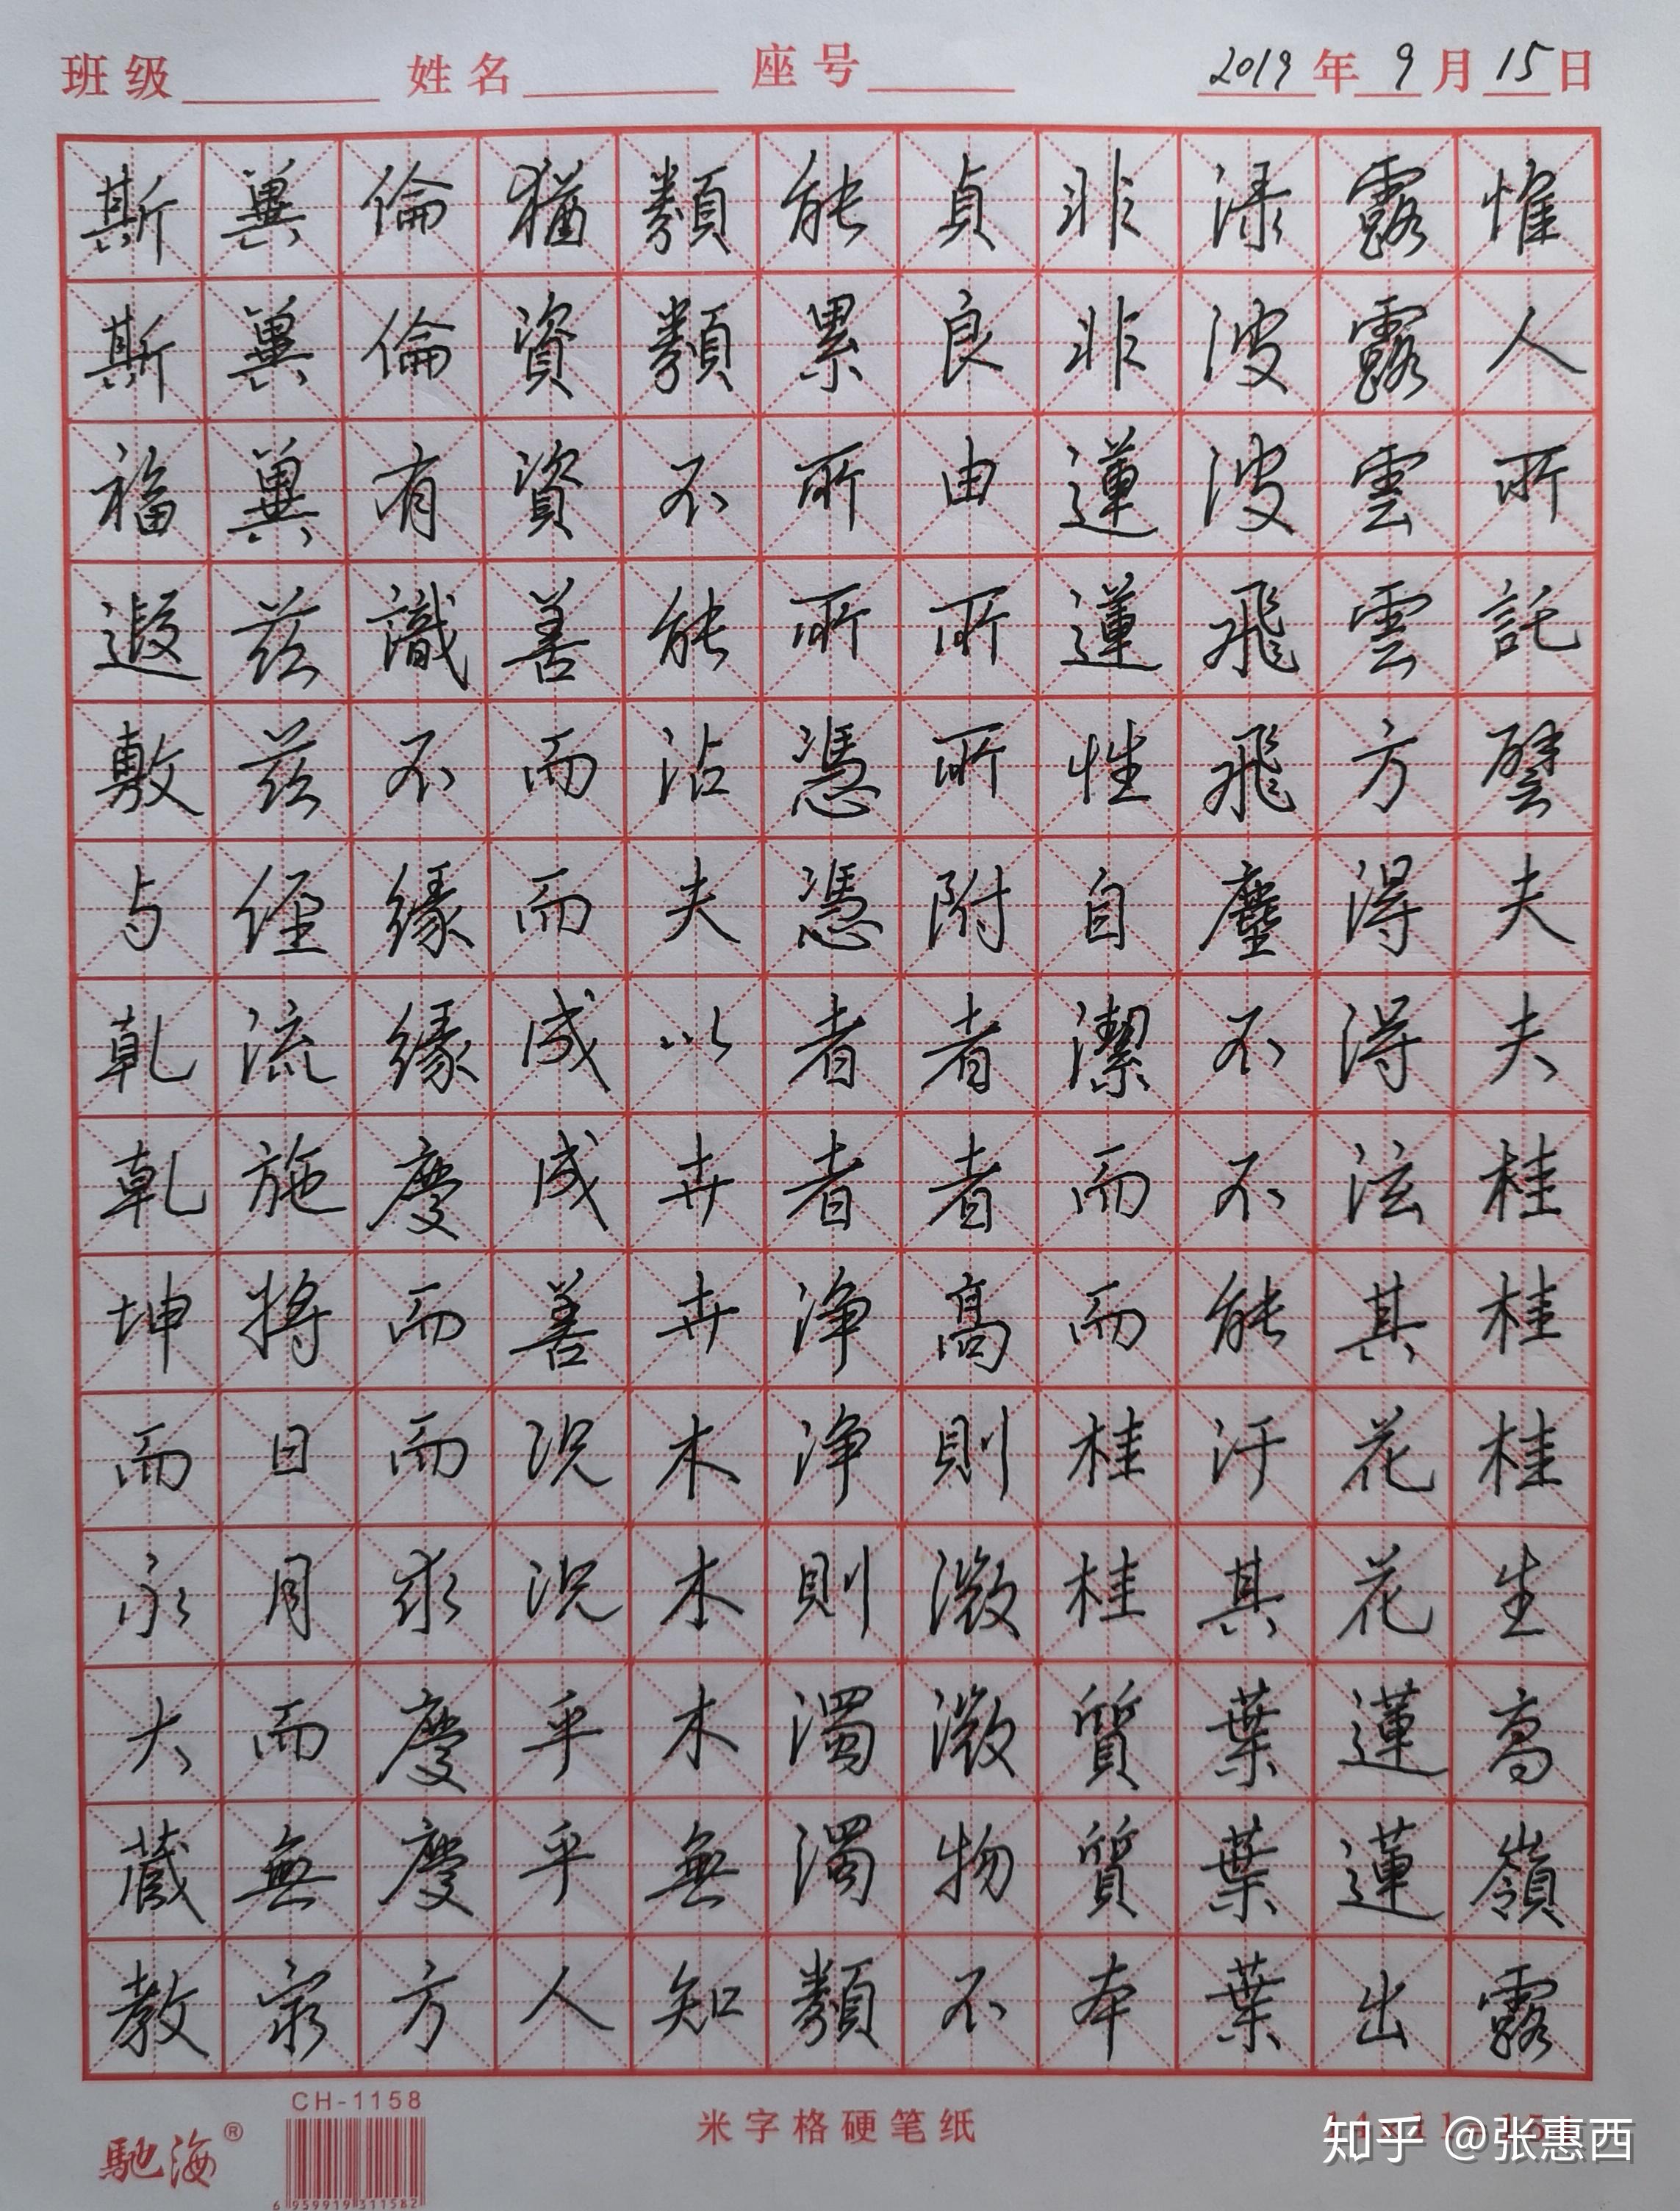 班级 姓名 座号 2019年9月15日
惟人所託譬夫夫桂桂桂生高嶺露
露露雲雲方得得泫其花花蓮蓮出
渌波波飛飛塵不不能汙其葉葉葉
非非蓮蓮性自潔而而桂桂質質本
貞良由所所附者者高則微微物不
能累所所憑憑者者淨淨則濁濁類
類類不能沾夫以卉卉木木木無知
猶資資善而而成成善況況乎乎人
倫倫有識不緣緣慶而而求慶慶方
冀冀冀兹兹經流施將日月而無窮
斯斯福遐敷与乾乾坤而永大藏教
CH-1158
馳海®
6 959919 311582
米字格硬笔纸
知乎 @张惠西